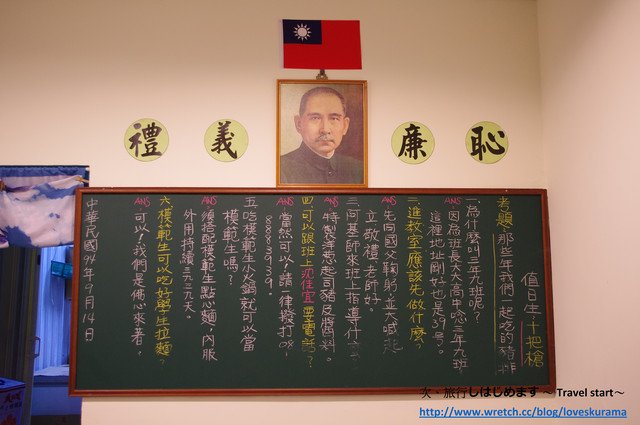 禮 義 廉 恥
值日生 十把槍
考題 那些年我們一起吃的豬排
一.為什麼叫三年九班呢?
ANS 因為班長大大高中唸三年九班
這裡地址剛好也是39号。
二.進教室應該先做什麼?
ANS 先向國父鞠躬並大喊起
立敬禮老師好。
三.阿基師來班上指導什
ANS 特製洋蔥起司豬皮醬料。
四.可以跟班上沈佳宜要電話?
ANS 當然可以!請一律撥打08-
8883939。
五.吃模範生小火鍋就可以當
模範生嗎?
ANS 須搭配模範生點心麵,內服
外用持續三九天。
六.模範生可以吃好學生拉麵?
ANS 可以!我們是佛心來著。
中華民國94年9月14日
次・旅行しはじめます ～ Travel start～
http://www.wretch.cc/blog/loveskurama